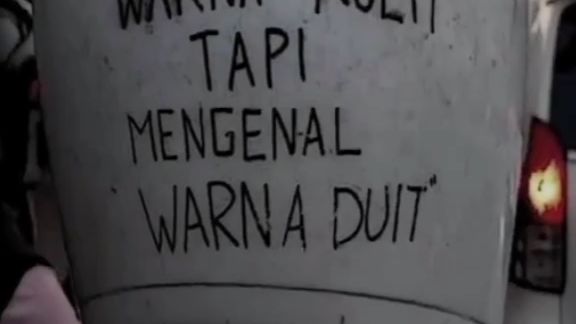 WARNA KULIT
TAPI
MENGENAL
"WARNA DUIT"